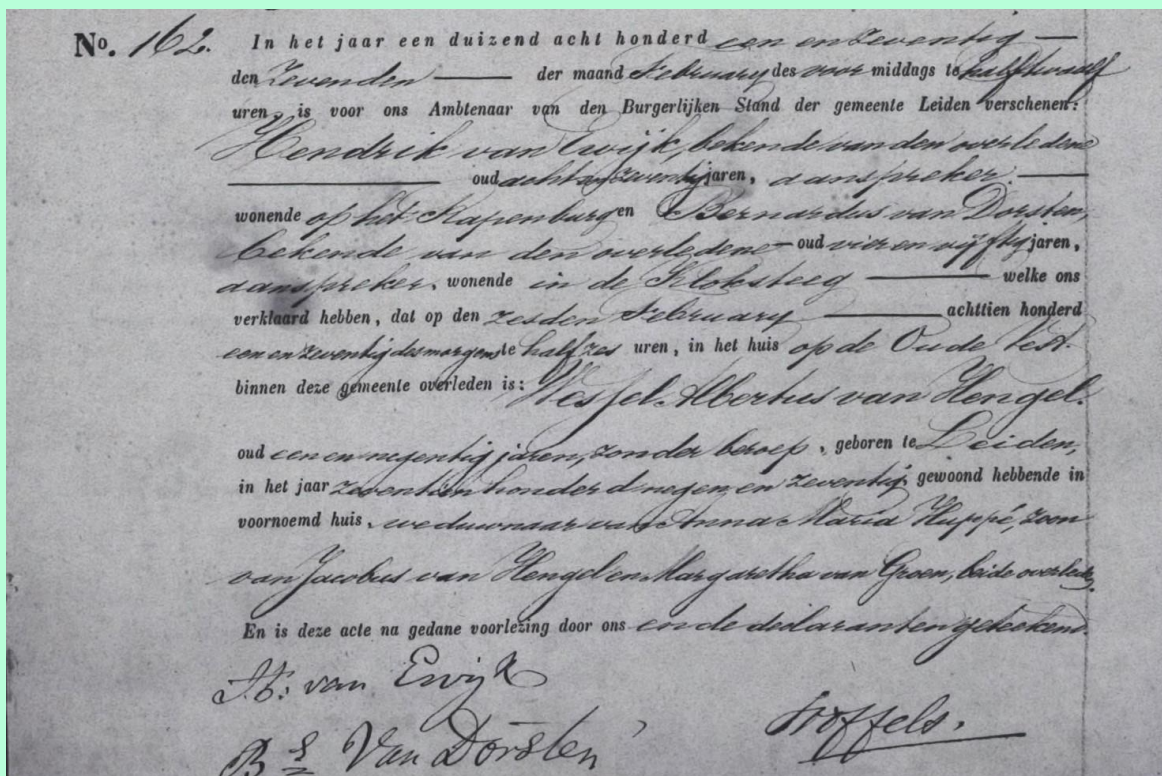 No. 162. In het jaar een duizend acht honderd een en zeventig
den Zevenden der maand February des voor middags te half twaalf
uren, is voor ons Ambtenaar van den Burgerlijken Stand der gemeente Leiden verschenen:
Hendrik van Ewijk, bekende van den overledene
oud acht en zeventig jaren, aanspreker
wonende op het Rapenburg en Bernardus van Dorsten,
bekende van den overledene oud vier en vijftig jaren,
aanspreker, wonende in de Kloksteeg welke ons
verklaard hebben, dat op den zesden February achttien honderd
een en zeventig des morgens te half zes uren, in het huis op de Oude Vest
binnen deze gemeente overleden is: Wessel Albertus van Hengel.
oud een en negentig jaren, zonder beroep, geboren te Leiden,
in het jaar zeventien honderd negen en zeventig gewoond hebbende in
voornoemd huis, weduwnaar van Anna Maria Huppé, zoon
van Jacobus van Hengel en Margaretha van Groen, beide overleden.
En is deze acte na gedane voorlezing door ons en de declaranten geteekend.
H: van Ewijk
Stoffels.
Bs Van Dorsten